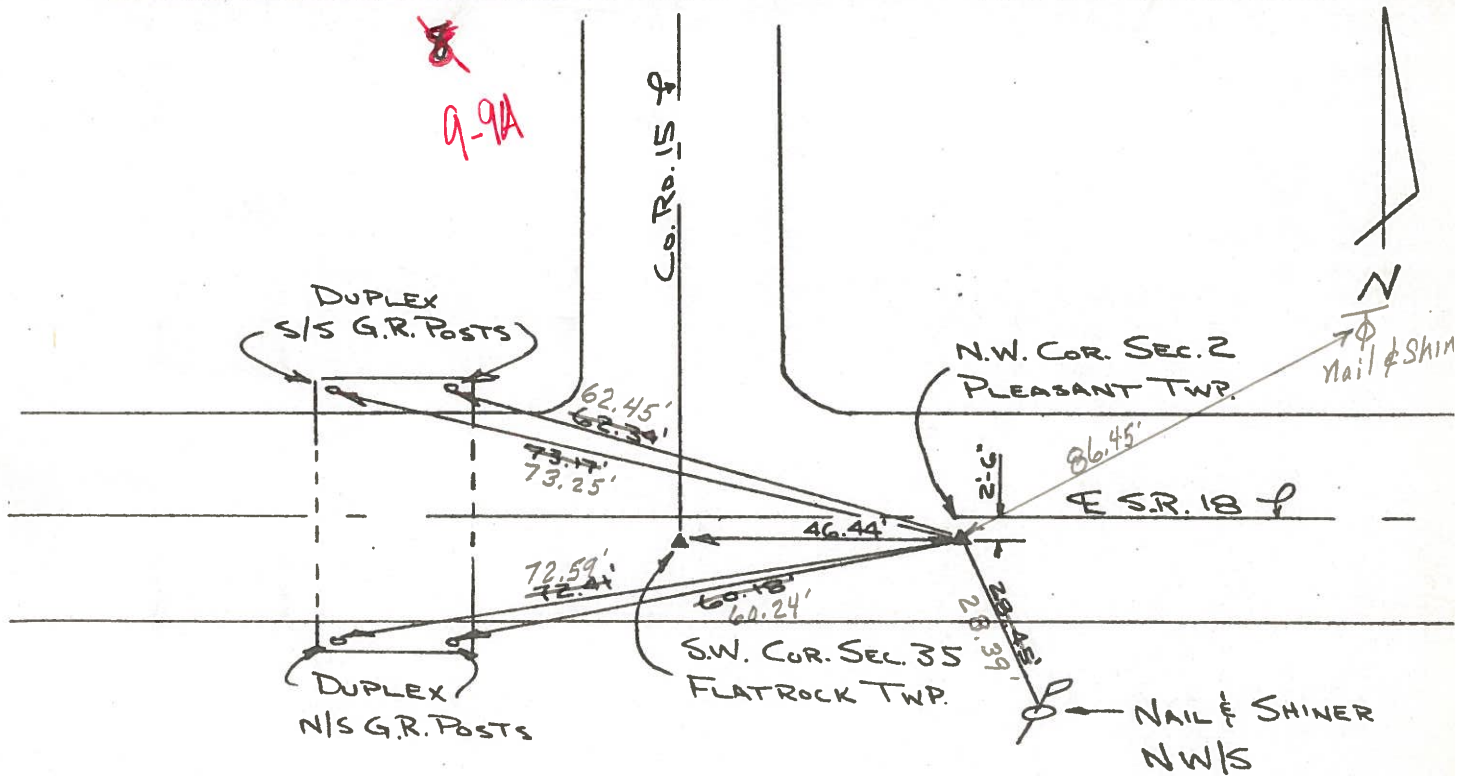 8
9-9A
Co. Rd. 15
DUPLEX
S/S G.R. POSTS
N
Nail & Shin
N.W. COR. SEC. 2
PLEASANT TWP.
62.45'
73.17'
73.25'
86.45'
S.R. 18
46.44'
72.59'
72.41'
60.18'
60.24'
28.45'
28.39'
S.W. COR. SEC. 35
FLATROCK TWP.
DUPLEX
N/S G.R. POSTS
NAIL & SHINER
NW/S